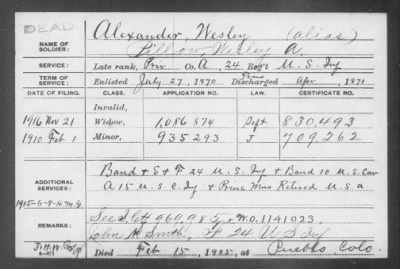 DEAD
Alexander, Wesley (alias)
NAME OF SOLDIER: Pillow, Wesley A.
SERVICE: Late rank, Priv Co. A, 24 Reg't U. S. Inf
TERM OF SERVICE: Enlisted July 27, 1870 Discharged Apr, 1871
DATE OF FILING. CLASS. APPLICATION NO. CERTIFICATE NO.
Invalid,
1916 Nov 21 Widow, 1,086 874 830,493
1910 Feb 1 Minor, 935293 J 709,262
ADDITIONAL SERVICES: Band & S & F 24 U. S. Inf & Band 10 U.S. Cav
A 15 U.S. C. Inf & Prin Mus Retired U.S.A
REMARKS: See 960,985, W.O. 1141023.
John H. Smith, F 24 U S Inf
Died Feb 15, 1905, at Pueblo, Colo.